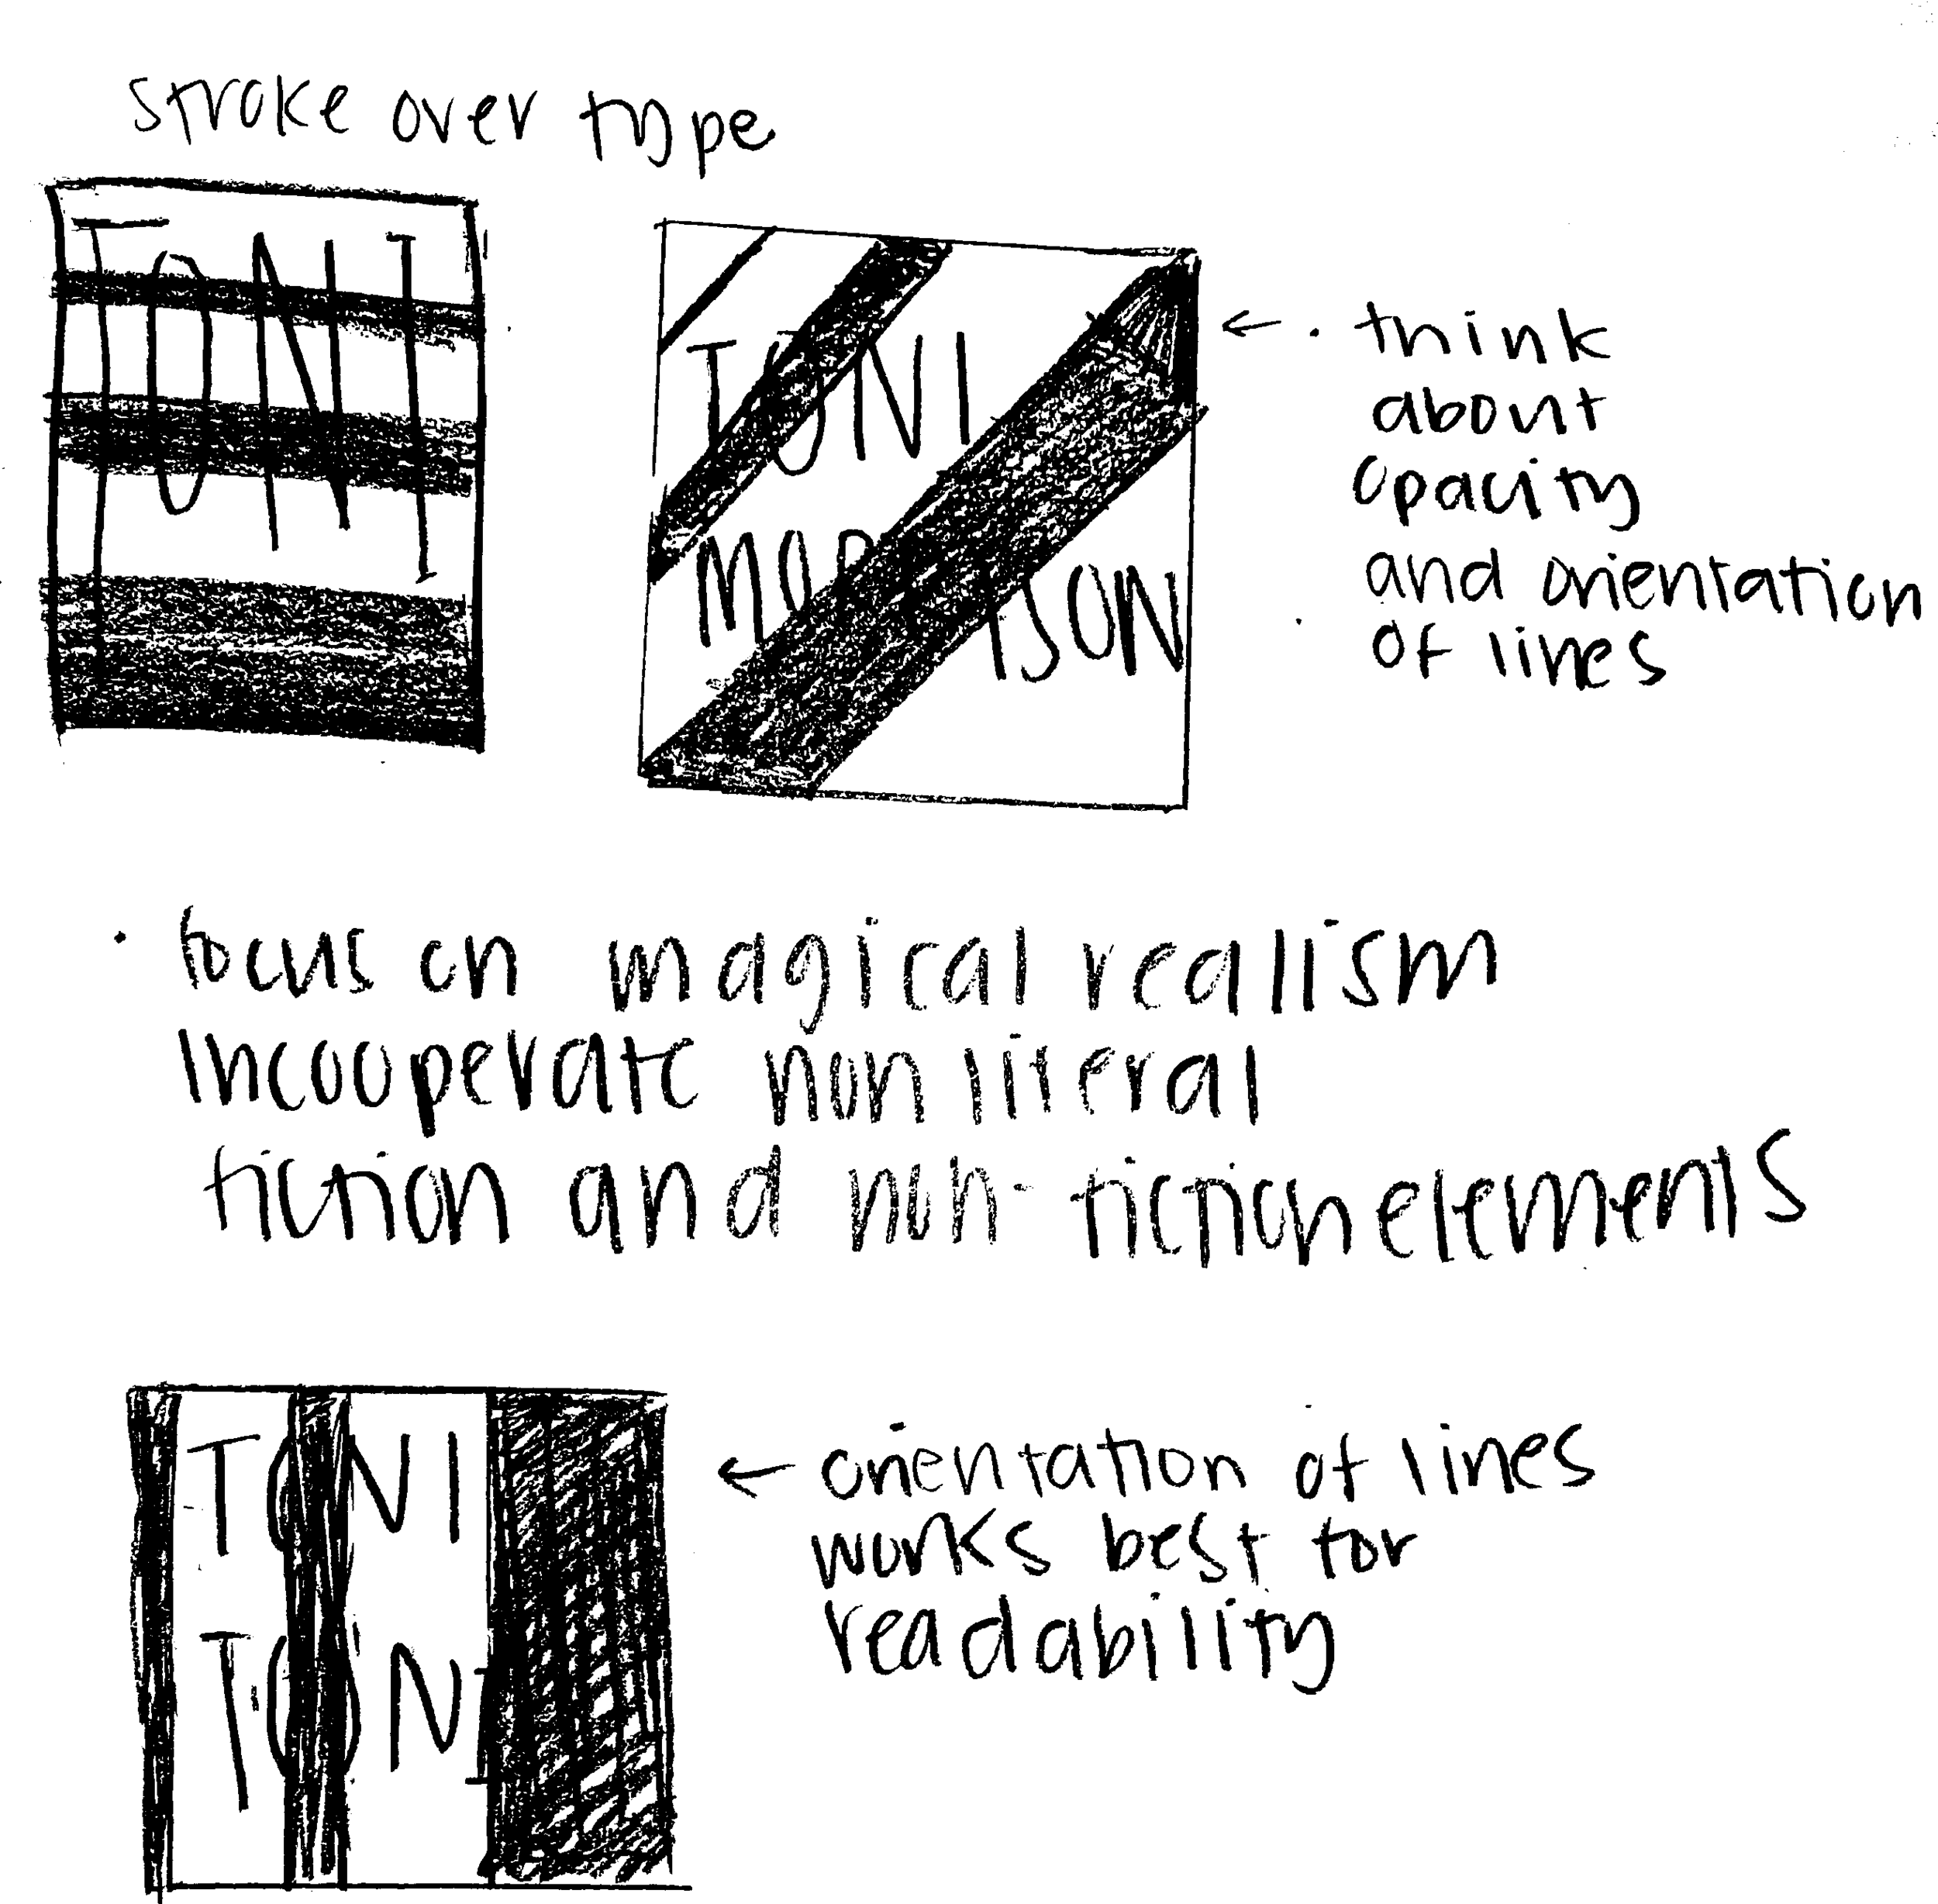 stroke over type
TONI
TONI
MOR ISON
← · think
about
opacity
and orientation
of lines
· focus on magical realism
incooperate non literal
fiction and non-fiction elements
TONI
TONI
← orientation of lines
works best for
readability